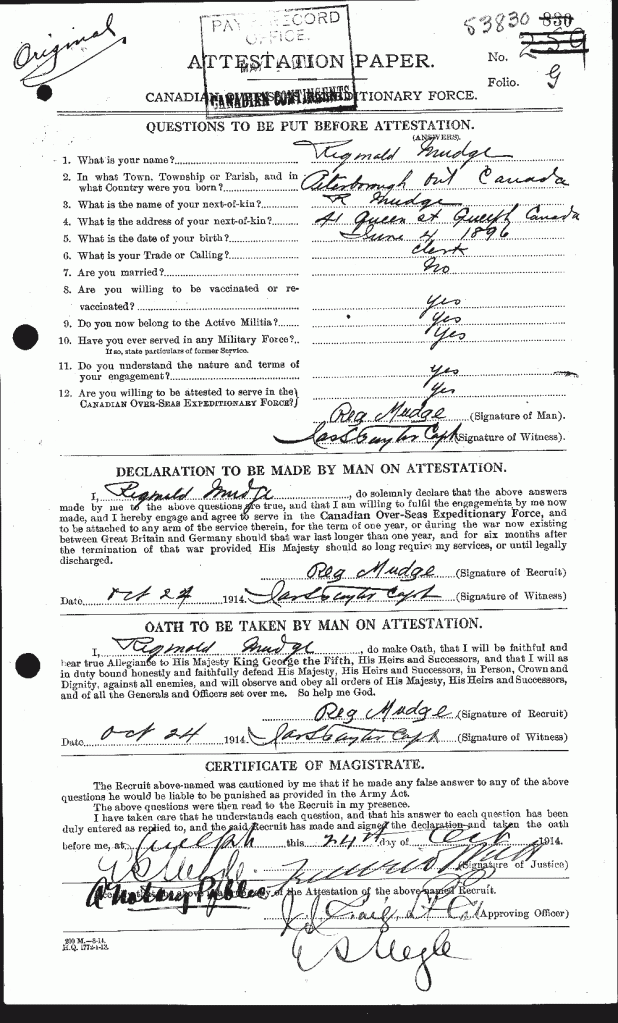 Original
PAY & RECORD
OFFICE.
CANADIAN CONTINGENTS
53830 830
No.
Folio. G
ATTESTATION PAPER.
CANADIAN OVER-SEAS EXPEDITIONARY FORCE.
QUESTIONS TO BE PUT BEFORE ATTESTATION.
(ANSWERS)
1. What is your name? Reginald Mudge
2. In what Town, Township or Parish, and in
what Country were you born? Peterborough Ont Canada
3. What is the name of your next-of-kin? R Mudge
4. What is the address of your next-of-kin? 41 Queen st Guelph Canada
5. What is the date of your birth? June 4 1896
6. What is your Trade or Calling? Clerk
7. Are you married? No
8. Are you willing to be vaccinated or re-
vaccinated? Yes
9. Do you now belong to the Active Militia? Yes
10. Have you ever served in any Military Force? Yes
If so, state particulars of former Service.
11. Do you understand the nature and terms of
your engagement? Yes
12. Are you willing to be attested to serve in the
CANADIAN OVER-SEAS EXPEDITIONARY FORCE? Yes
Reg Mudge (Signature of Man).
Capt (Signature of Witness).
DECLARATION TO BE MADE BY MAN ON ATTESTATION.
I, Reginald Mudge, do solemnly declare that the above answers
made by me to the above questions are true, and that I am willing to fulfil the engagements by me now
made, and I hereby engage and agree to serve in the Canadian Over-Seas Expeditionary Force, and
to be attached to any arm of the service therein, for the term of one year, or during the war now existing
between Great Britain and Germany should that war last longer than one year, and for six months after
the termination of that war provided His Majesty should so long require my services, or until legally
discharged.
Reg Mudge (Signature of Recruit)
Date Oct 24 1914. Capt (Signature of Witness)
OATH TO BE TAKEN BY MAN ON ATTESTATION.
I, Reginald Mudge, do make Oath, that I will be faithful and
bear true Allegiance to His Majesty King George the Fifth, His Heirs and Successors, and that I will as
in duty bound honestly and faithfully defend His Majesty, His Heirs and Successors, in Person, Crown and
Dignity, against all enemies, and will observe and obey all orders of His Majesty, His Heirs and Successors,
and of all the Generals and Officers set over me. So help me God.
Reg Mudge (Signature of Recruit)
Date Oct 24 1914. Capt (Signature of Witness)
CERTIFICATE OF MAGISTRATE.
The Recruit above-named was cautioned by me that if he made any false answer to any of the above
questions he would be liable to be punished as provided in the Army Act.
The above questions were then read to the Recruit in my presence.
I have taken care that he understands each question, and that his answer to each question has been
duly entered as replied to, and the said Recruit has made and signed the declaration and taken the oath
before me, at Guelph this 24th day of Oct 1914.
(Signature of Justice)
A Notary Public
of the Attestation of the above-named Recruit.
(Approving Officer)
200 M.—8-14.
H.Q. 1772-1-13.